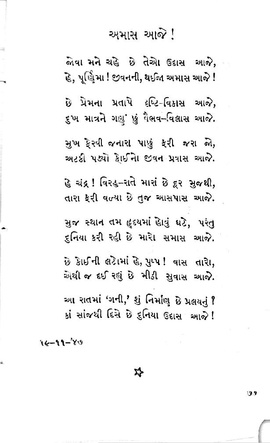 અમાસ આજે !
જોવા મને ચહે છે તેઓ ઉદાસ આજે,
હે, પૂર્ણિમા ! જીવનની, થઈજા અમાસ આજે !
છે પ્રેમના પ્રતાપે દૃષ્ટિ-વિકાસ આજે,
દુખ માત્રને ગણું છું વૈભવ–વિલાસ આજે.
મુખ ફેરવી જનારા પાછું ફરી જરા જો,
અટકી પડ્યો કોઈનો જીવન પ્રવાસ આજે.
હે ચંદ્ર ! વિરહ–રાતે મારાં છે દૂર મુજથી,
તારા ફરી વળ્યા છે તુજ આસપાસ આજે.
મુજ સ્થાન તમ હૃદયમાં હોવું ઘટે, પરંતુ
દુનિયા કરી રહી છે મારો સમાસ આજે.
છે કોઈની લટોમાં હે, પુષ્પ ! વાસ તારો,
એથી જ દઈ રહ્યું છે મીઠી સુવાસ આજે.
આ રાતમાં 'ગની,' શું નિર્માણ છે પ્રલયનું ?
કાં સાંજથી દિસે છે દુનિયા ઉદાસ આજે !
૧૯–૧૧–'૪૭
૫૭